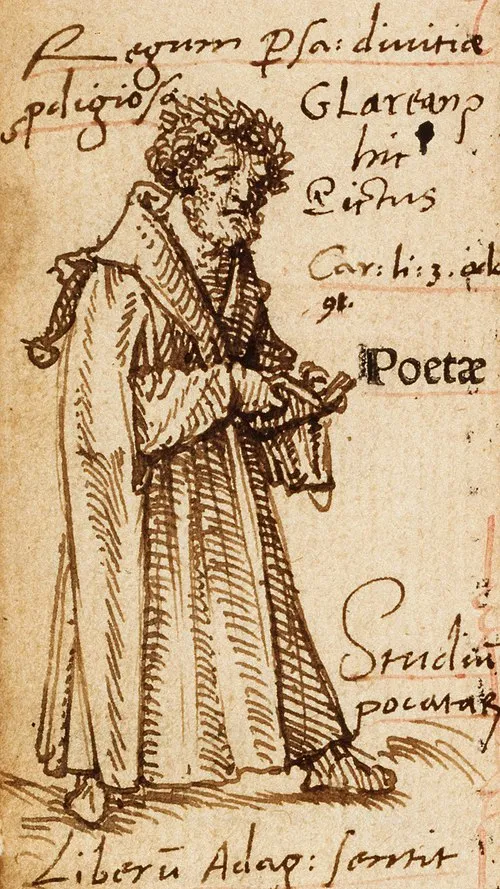 Regum Psa: diuitiæ
pdigiosa
GLareanꝰ
hic
Pictus
Car: li: 3. ode
9.
Poetæ
Studiū
pocataꝝ
Liberū Adag: sentit